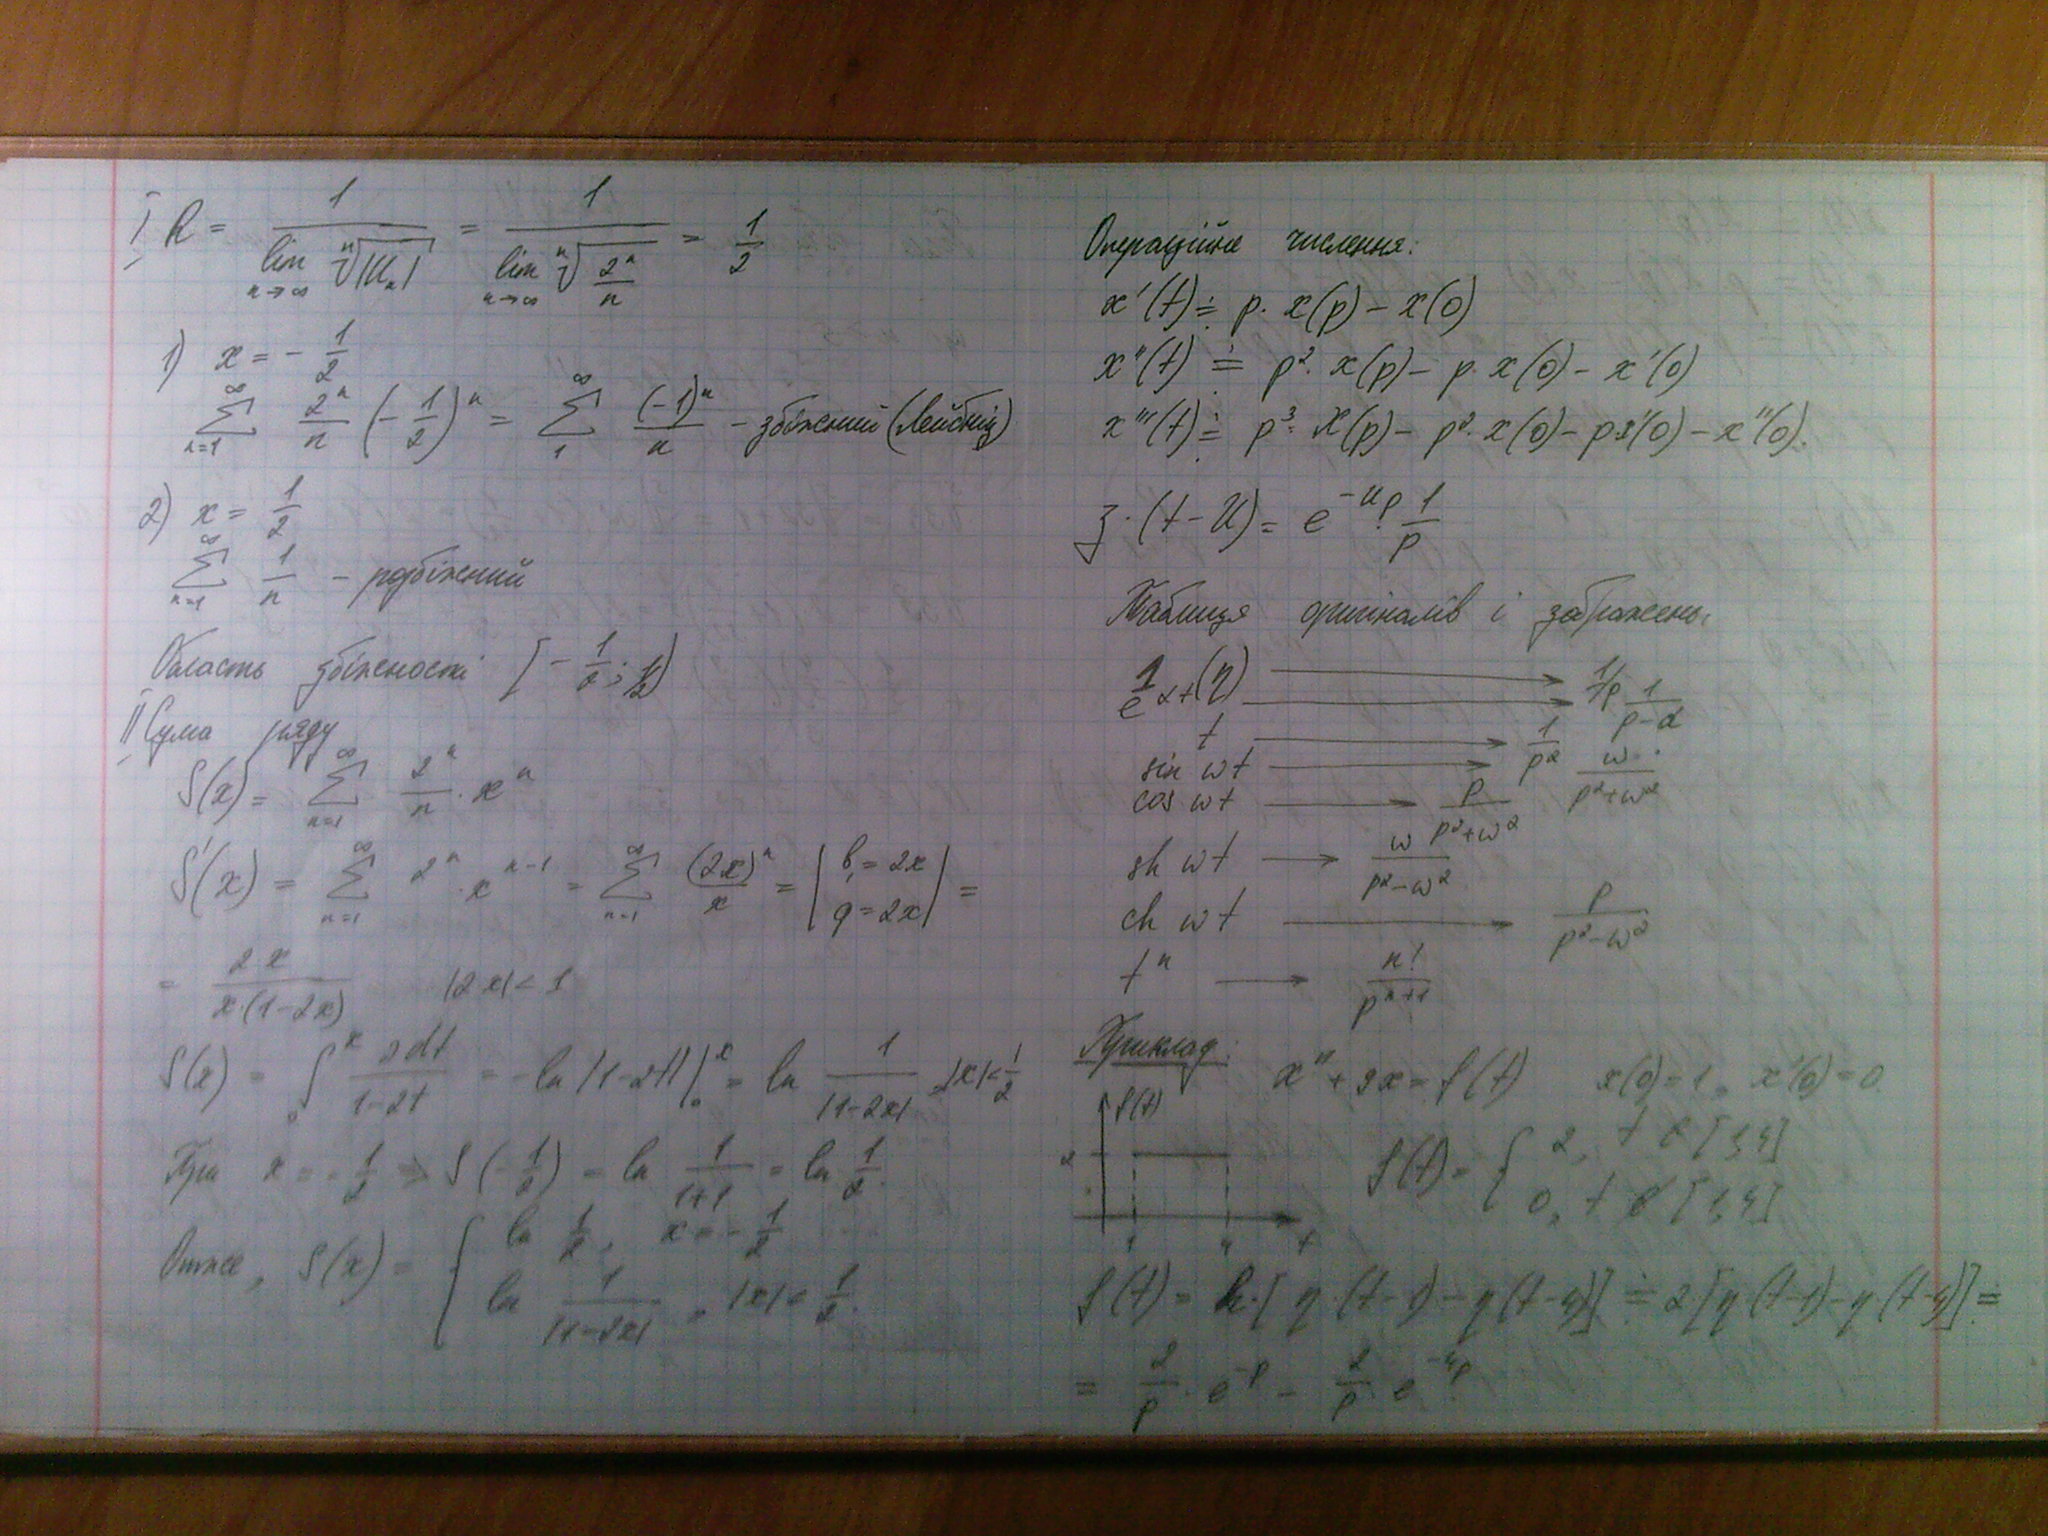 I. R = 1 / (lim n→∞ ⁿ√|Uₙ|) = 1 / (lim n→∞ ⁿ√(2ⁿ/n)) = 1/2
1) x = - 1/2
∑ n=1 ∞ 2ⁿ/n (- 1/2)ⁿ = ∑ 1 ∞ (-1)ⁿ/n - збіжний (Лейбніц)
2) x = 1/2
∑ n=1 ∞ 1/n - розбіжний
Область збіжності [- 1/2; 1/2)
II. Сума ряду
S(x) = ∑ n=1 ∞ 2ⁿ/n · xⁿ
S'(x) = ∑ n=1 ∞ 2ⁿ · xⁿ⁻¹ = ∑ n=1 ∞ (2x)ⁿ/x = | b₁ = 2x q = 2x | =
= 2·x / (x·(1-2x)) |2x| < 1
S(x) = ∫₀ˣ 2dt/(1-2t) = -ln|1-2t| |₀ˣ = ln 1/|1-2x|, |x| < 1/2
При x = - 1/2 ⇒ S(- 1/2) = ln 1/(1+1) = ln 1/2.
Отже, S(x) = { ln 1/2, x = - 1/2
ln 1/|1-2x|, |x| < 1/2.
Операційне числення:
x'(t) ≑ p · x(p) - x(0)
x''(t) ≑ p² · x(p) - p · x(0) - x'(0)
x'''(t) ≑ p³ · X(p) - p² · x(0) - p x'(0) - x''(0).
· (t - u) = e^(-up) · 1/p
Таблиця оригіналів і зображень.
1 (η) → 1/p
e^(αt) → 1/(p-α)
t → 1/p²
sin ωt → ω/(p²+ω²)
cos ωt → p/(p²+ω²)
sh ωt → ω/(p²-ω²)
ch ωt → p/(p²-ω²)
tⁿ → n!/pⁿ⁺¹
Приклад: x'' + 9x = f(t) x(0) = 1, x'(0) = 0.
f(t)
2
1 4 t
f(t) = { 2, t ∈ [1,4]
0, t ∉ [1,4]
f(t) = h·[η·(t-1) - η(t-4)] ≑ 2[η(t-1) - η·(t-4)] ≑
= 2/p · e^(-p) - 2/p e^(-4p)